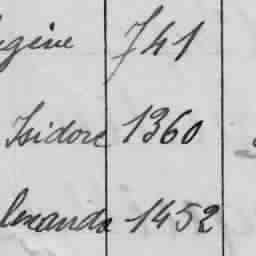 gène 741
Isidore 1360
lexandre 1452